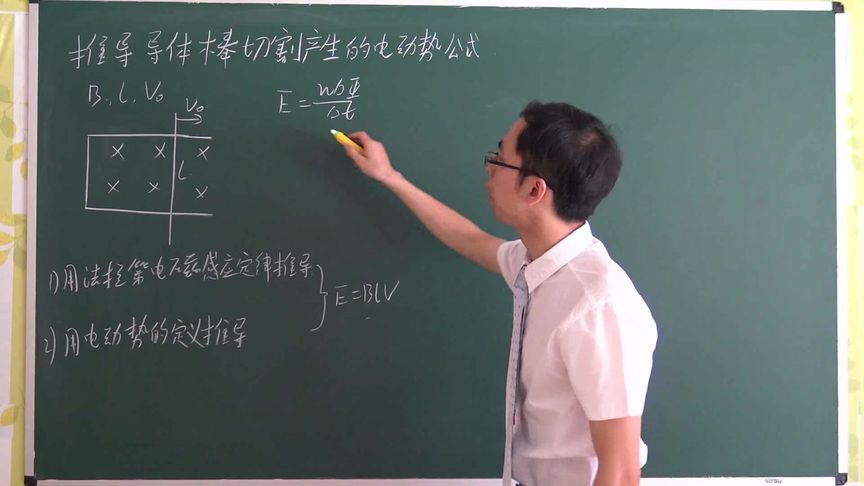 推导导体棒切割产生的电动势公式
B、L、V₀
E = nΔΦ/Δt
V₀
× × ×
L
× × ×
1) 用法拉第电磁感应定律推导
E=BLV
2) 用电动势的定义推导